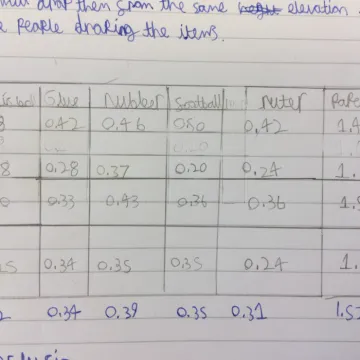 drop them from the same elevation
people droping the items.
Glue Rubber football ruter Pape
0.42 0.46 0.50 0.42 1.4
8 0.28 0.37 0.20 0.24 1.
0.33 0.43 0.36 0.36 1.
5 0.34 0.35 0.35 0.24 1.
2 0.34 0.39 0.35 0.31 1.5